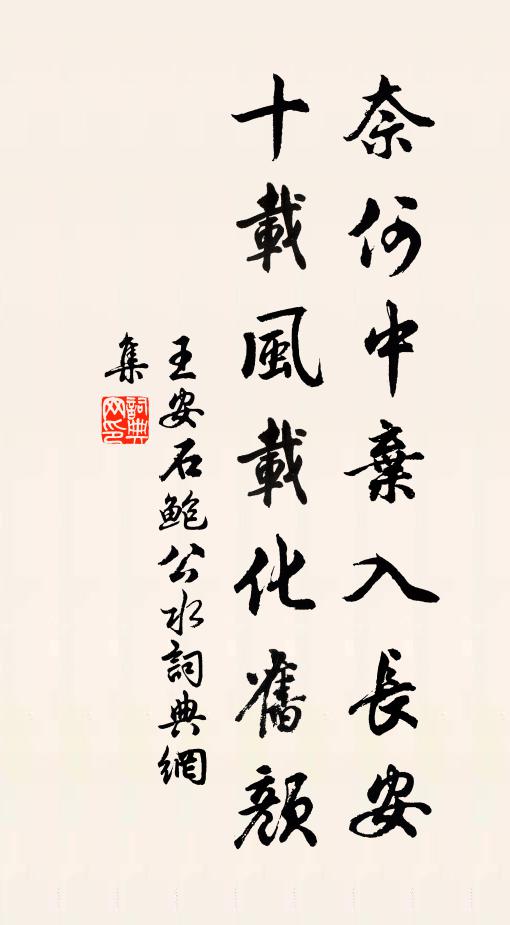 奈何中棄入長安
十載風載化舊顏
王安石鮑公水詞典網
集
詞典網印